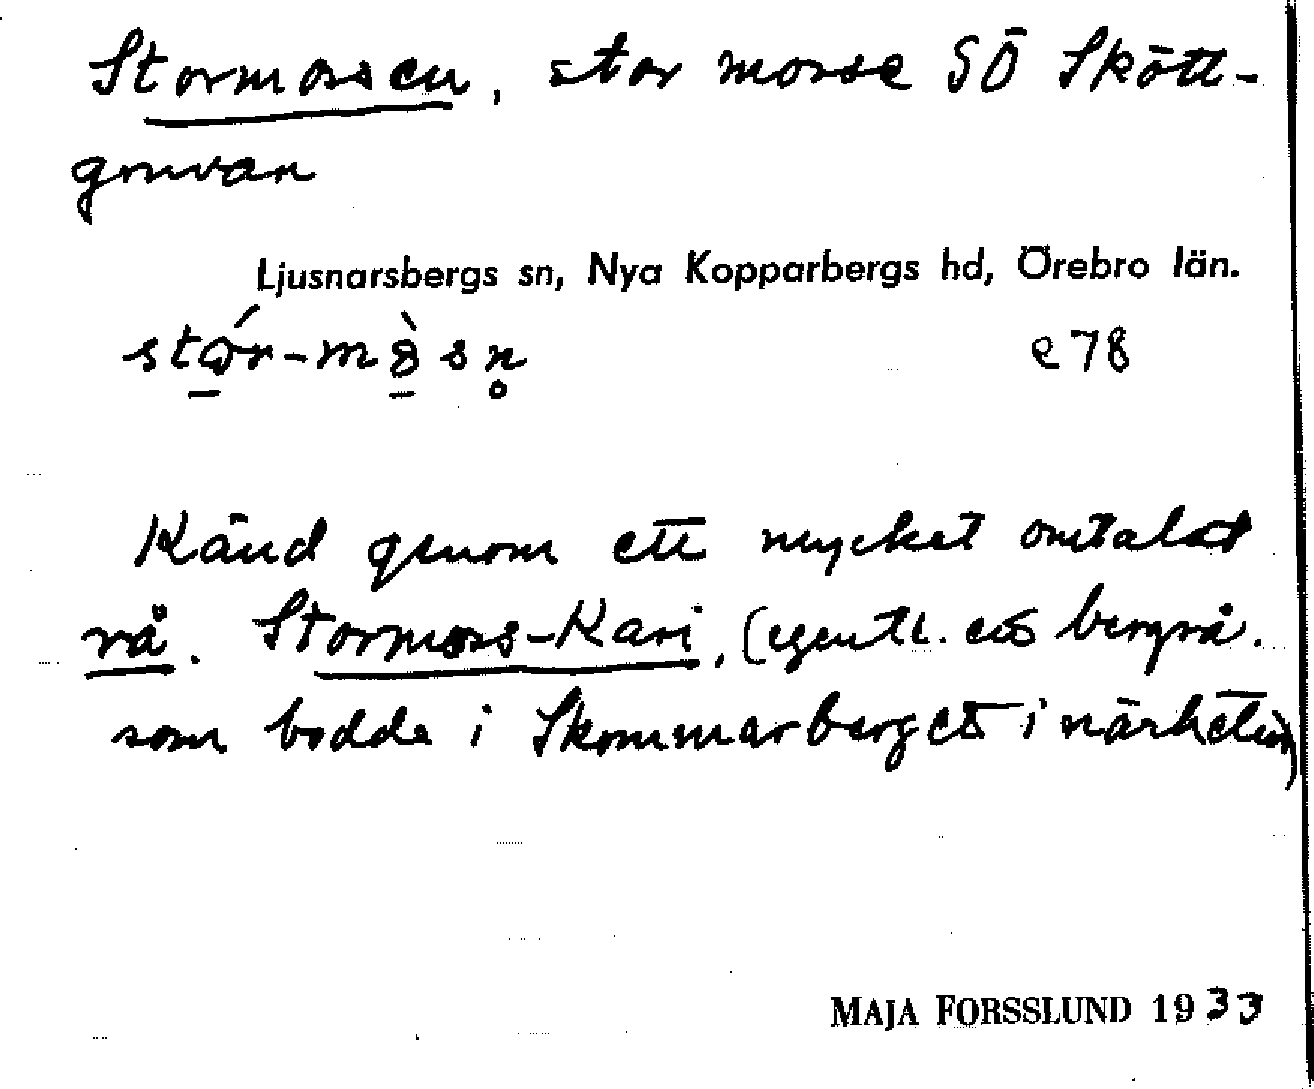 Stormossen, stor mosse SÖ Skött-
gruvan
Ljusnarsbergs sn, Nya Kopparbergs hd, Örebro län.
stór-mòsn̥ e78
Känd genom ett mycket omtalat
rå. Stormoss-Kari, (egentl. ett bergrå.
som bodde i Skommarberget i närheten)
MAJA FORSSLUND 1933